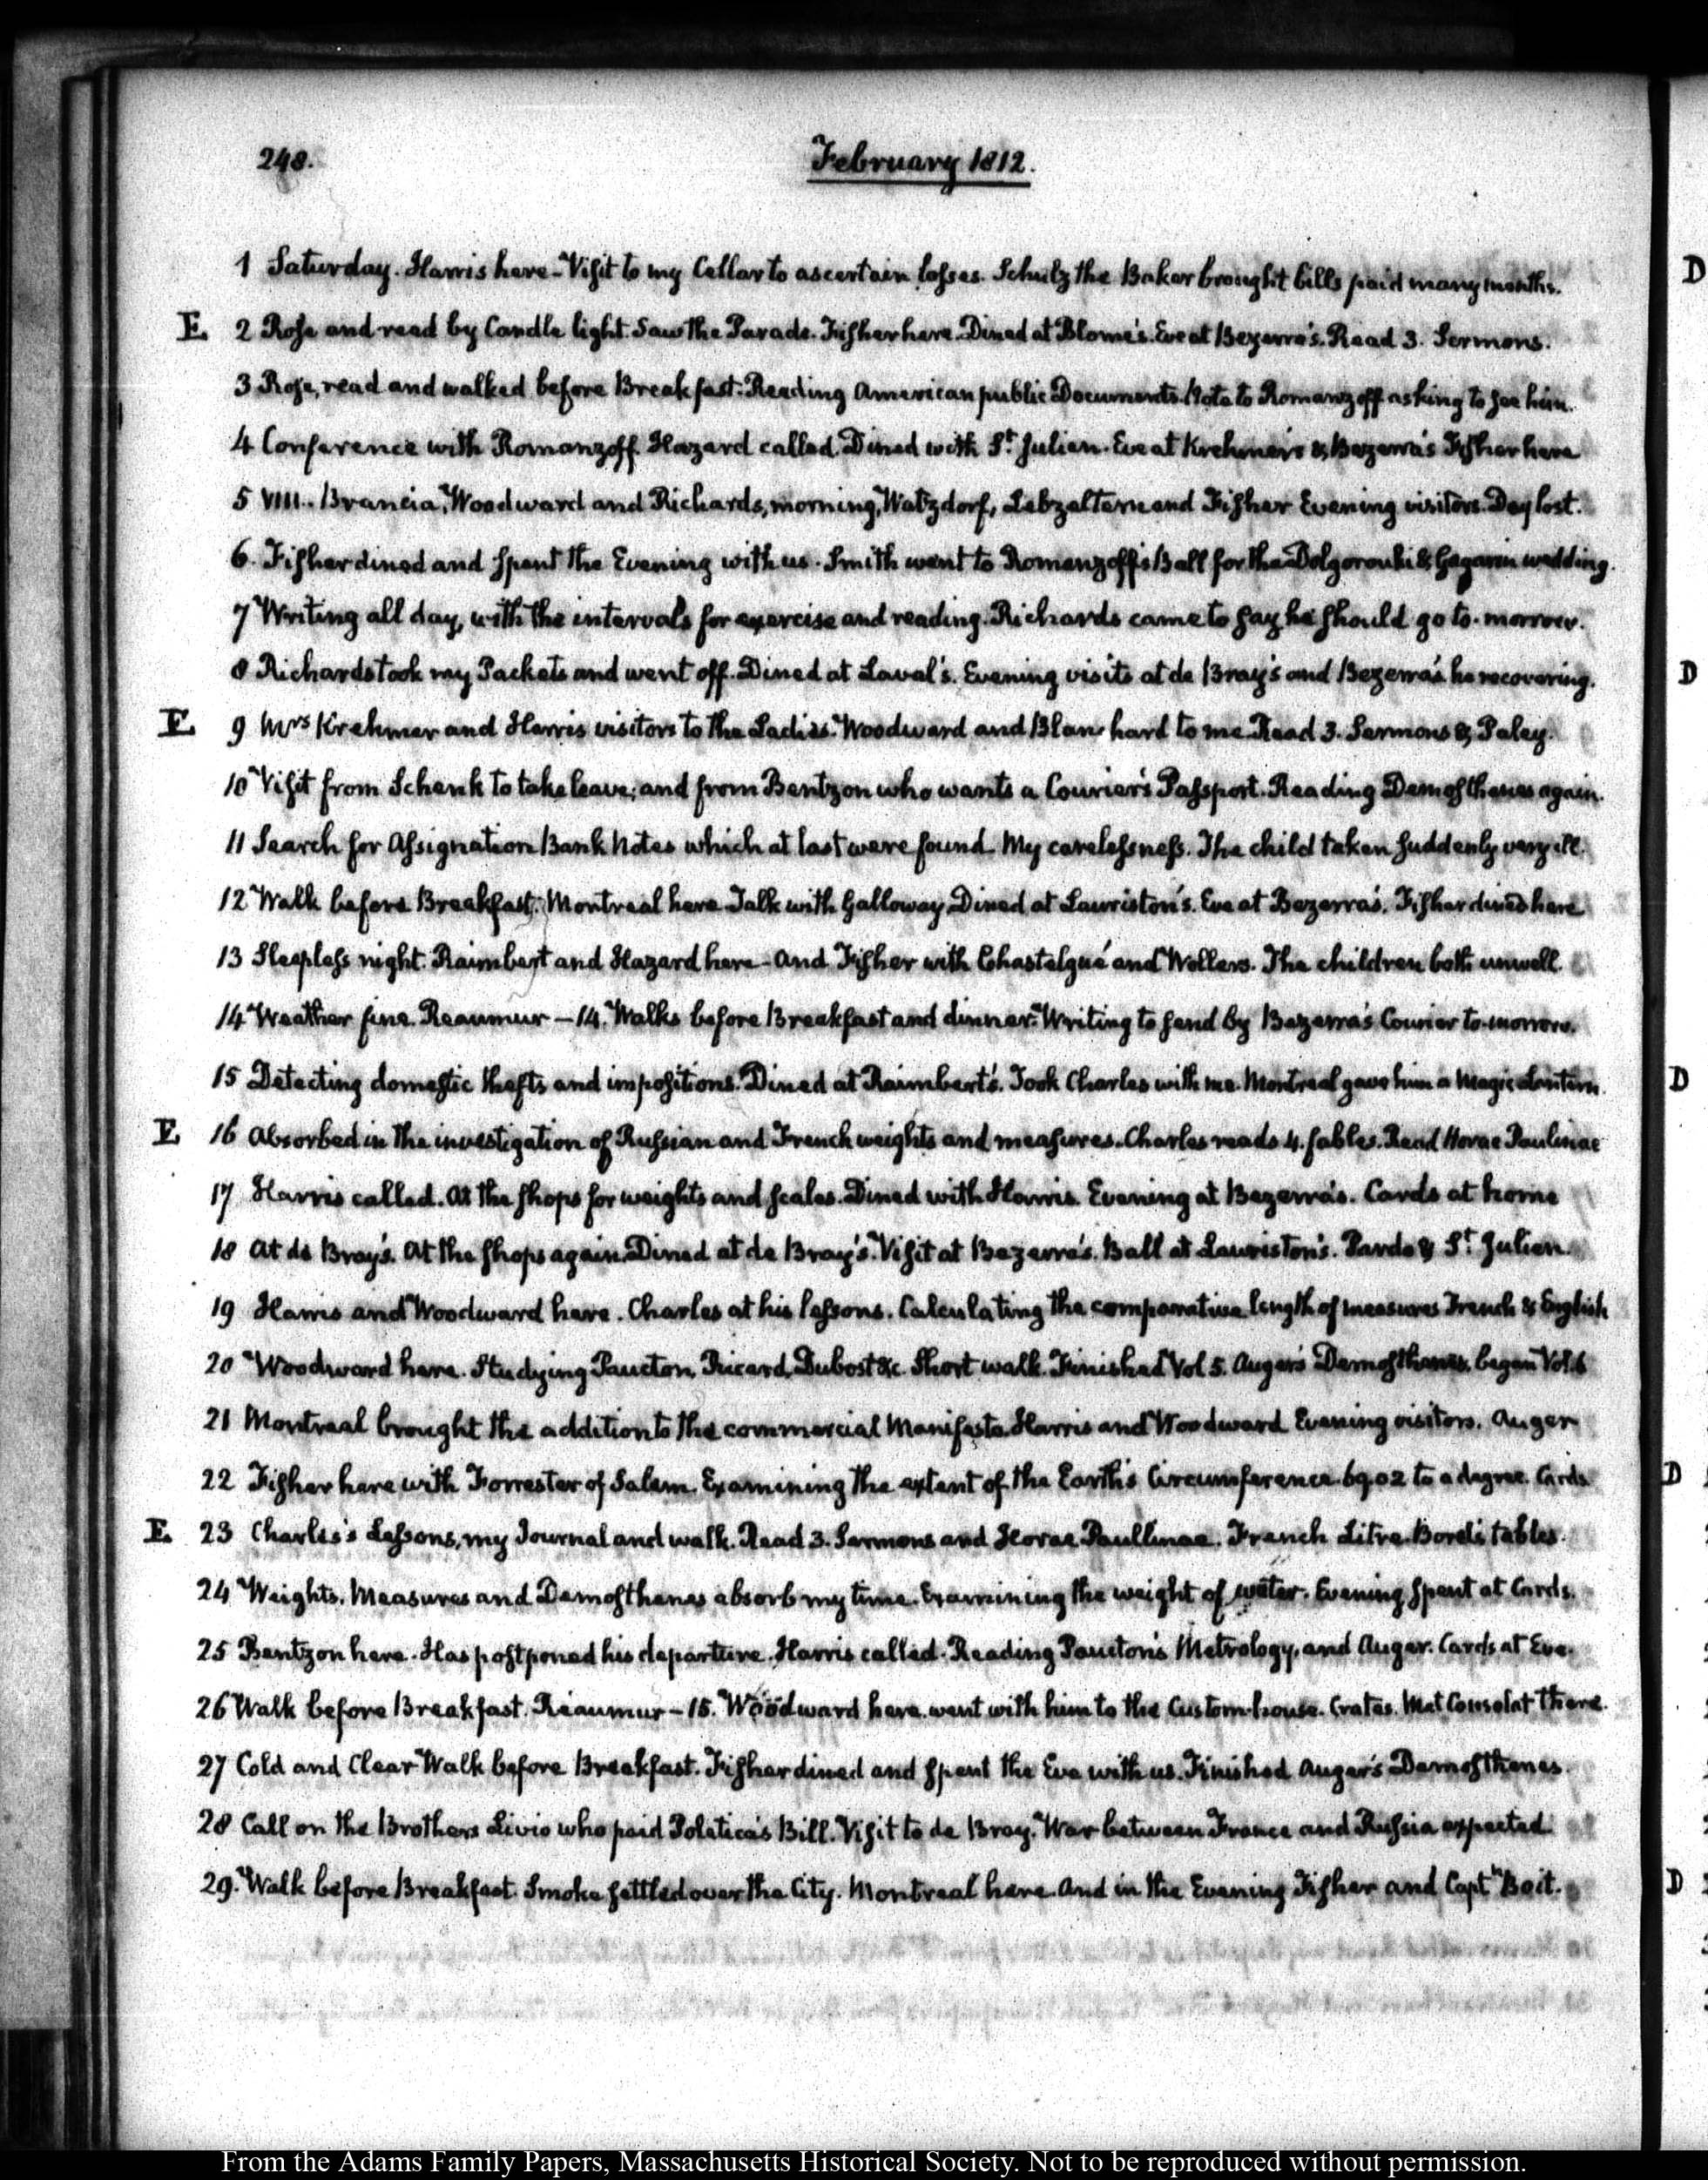 248.
February 1812.
1 Saturday. Harris here - Visit to my Cellar to ascertain losses. Schulz the Baker brought bills paid many months.
E 2 Rose and read by Candle light. Saw the Parade. Fisher here. Dined at Blome's. Eve at Bezerra's. Read 3. Sermons.
3 Rose, read and walked before Breakfast. Reading American public Documents. Note to Romanzoff asking to see him.
4 Conference with Romanzoff. Hazard called. Dined with St. Julien. Eve at Krehmer's & Bezerra's Fisher here
5 VIII.. Brancia, Woodward and Richards, morning, Watzdorf, Lebzeltern and Fisher Evening visitors. Day lost.
6. Fisher dined and spent the Evening with us. Smith went to Romanzoff's Ball for the Dolgorouki & Gagarin wedding.
7 Writing all day, with the intervals for exercise and reading. Richards came to say he should go to-morrow.
8 Richards took my Packets and went off. Dined at Laval's. Evening visits at de Bray's and Bezerra's he recovering.
E 9 Mrs Krehmer and Harris visitors to the Ladies. Woodward and Blanchard to me. Read 3. Sermons & Paley.
10 Visit from Schenk to take leave; and from Bentzon who wants a Courier's Passport. Reading Demosthenes again.
11 Search for Assignation Bank Notes which at last were found. My carelessness. The child taken suddenly very ill.
12 Walk before Breakfast. Montreal here. Talk with Galloway. Dined at Lauriston's. Eve at Bezerra's. Fisher dined here
13 Sleepless night. Raimbert and Hazard here - And Fisher with Chastelgué and Wellers. The children both unwell.
14 Weather fine. Reaumur -14. Walks before Breakfast and dinner. Writing to send by Bezerra's Courier to-morrow.
15 Detecting domestic thefts and impositions. Dined at Raimbert's. Took Charles with me. Montreal gave him a Magic Lantern.
E 16 Absorbed in the investigation of Russian and French weights and measures. Charles reads 4. fables. Read Horae Paulinae
17 Harris called. At the shops for weights and scales. Dined with Harris. Evening at Bezerra's. Cards at home
18 At de Bray's. At the shops again. Dined at de Bray's. Visit at Bezerra's. Ball at Lauriston's. Pardo & St. Julien.
19 Harris and Woodward here. Charles at his lessons. Calculating the comparative length of measures French & English
20 Woodward here. Studying Paucton, Ricard, Dubost &c. Short walk. Finished Vol 5. Auger's Demosthenes, began Vol. 6
21 Montreal brought the addition to the commercial Manifesto. Harris and Woodward Evening visitors. Auger
22 Fisher here with Forrester of Salem. Examining the extent of the Earth's Circumference. 69.02 to a degree. Cards
E 23 Charles's Lessons, my Journal and walk. Read 3. Sermons and Horae Paullinae. French Litre. Borda's tables.
24 Weights. Measures and Demosthenes absorb my time. Examining the weight of water. Evening spent at Cards.
25 Bentzon here. Has postponed his departure. Harris called. Reading Paucton's Metrology, and Auger. Cards at Eve.
26 Walk before Breakfast. Réaumur -15. Woodward here. went with him to the Custom-house. Crates. Met Consolat there.
27 Cold and Clear Walk before Breakfast. Fisher dined and spent the Eve with us. Finished Auger's Demosthenes.
28 Call on the Brothers Livio who paid Politica's Bill. Visit to de Bray. War between France and Russia expected.
29. Walk before Breakfast. Smoke settled over the City. Montreal here. And in the Evening Fisher and Captn Boit.
D
D
D
D
D
From the Adams Family Papers, Massachusetts Historical Society. Not to be reproduced without permission.